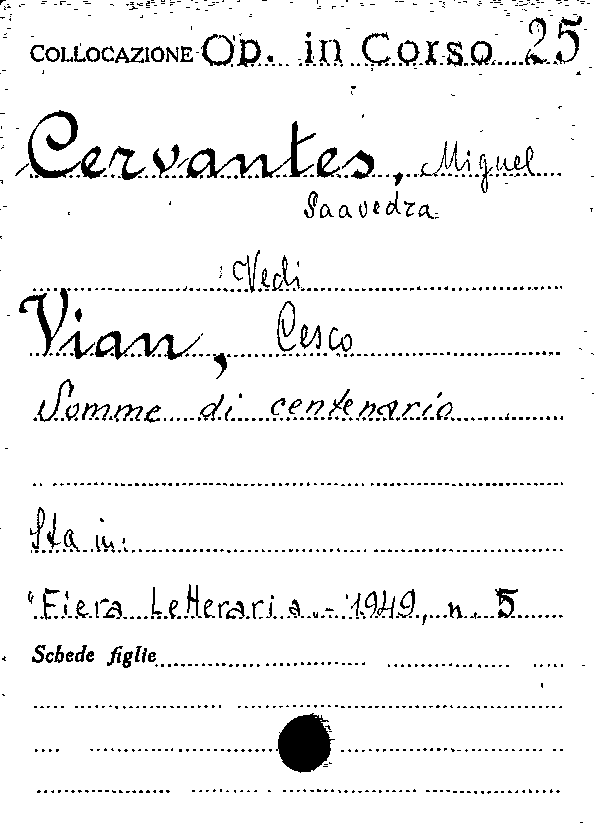 COLLOCAZIONE Op. in Corso 25
Cervantes, Miguel
Saavedra
Vedi
Vian, Cesco
Somme di centenario
Sta in:
"Fiera Letteraria - 1949, n. 5
Schede figlie